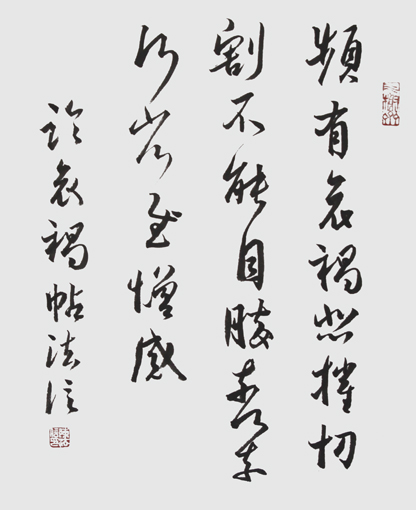 頻有哀禍悲摧切
割不能自勝奈何奈
何省慰增感
臨哀禍帖法信